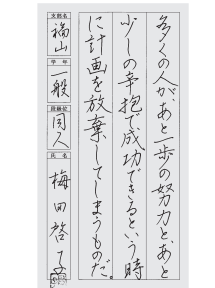 多くの人が、あと一歩の努力と、あと
少しの辛抱で成功できるという時
に計画を放棄してしまうものだ。
支部名 福山 学年 一般 段級位 同人 氏名 梅田啓子